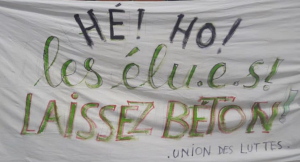 HÉ! HO!
les élu.e.s!
LAISSEZ BÉTON!
. UNION DES LUTTES .